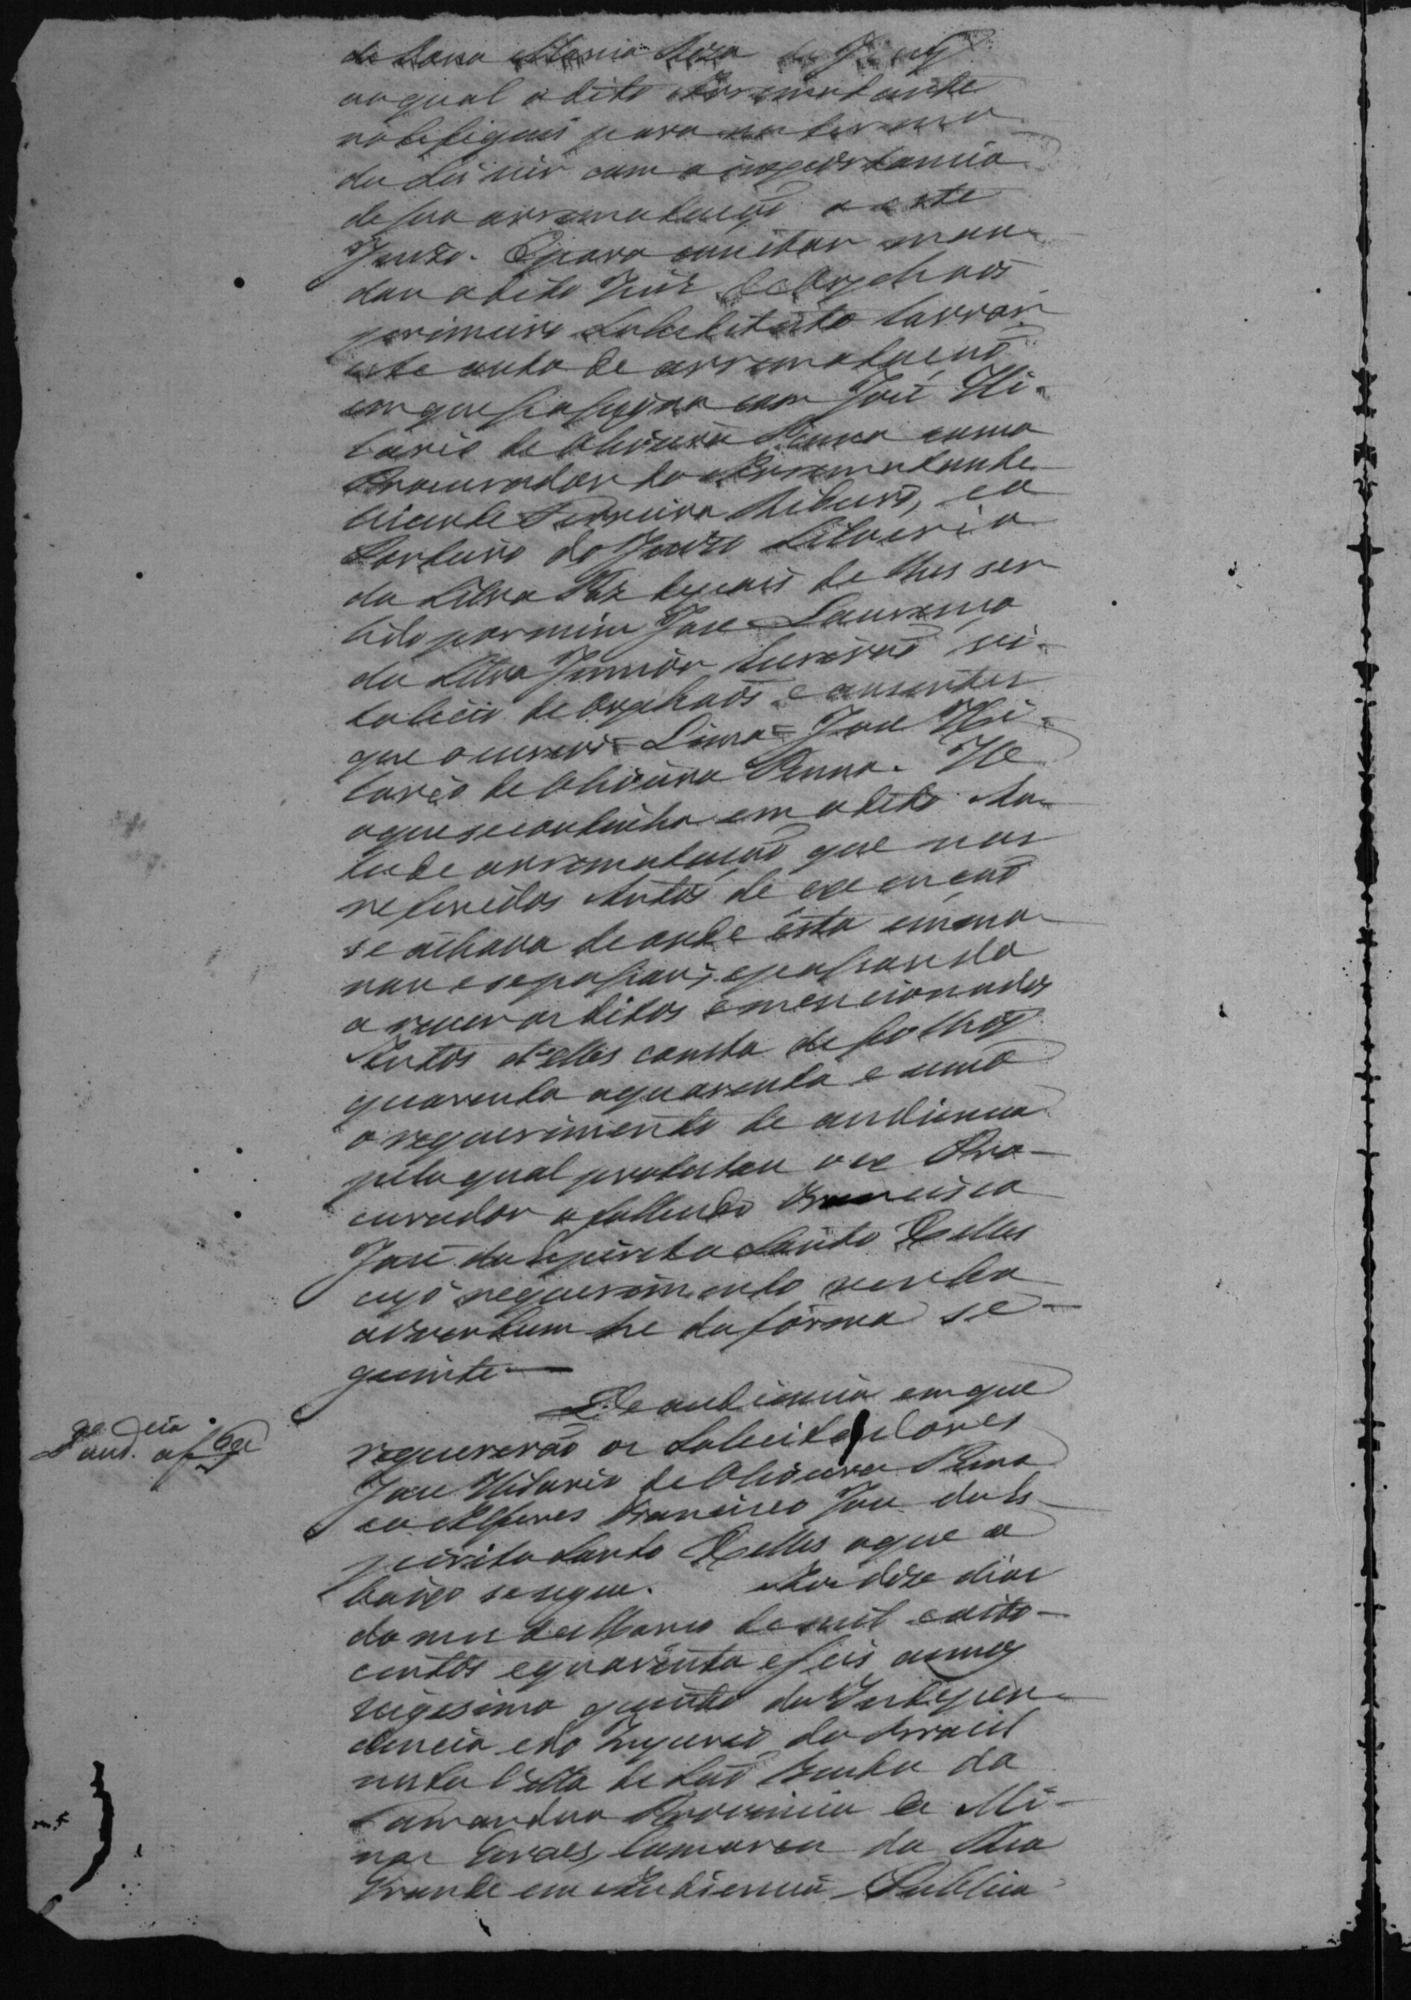 de Dona Maria Roza de Jesus
ao qual o dito Arrematante
notefiquei para no termo
da Lei vir com a importancia
de sua arrematação a este
Juizo. E para constar man-
dou o dito Juiz de Orphaos
primeiro substituto lavrar
este auto de arrematação
em que se assigna com José Hi-
lario de Oliveira Penna como
Procurador do Arrematante
Vicente Ferreira Ribeiro, e o
Porteiro do Juizo Silverio
da Silva depois de lhes ser
lido por mim José Lourenço
da Silva Junior Escrivão vi-
talicio de Orphaos e ausentes
que o escrevi = Lima = José Hi-
lario de Oliveira Penna. He
o que se continha em o dito Au-
to de arrematação que nos
referidos Autos de execução
se achava de onde esta emma-
nou e se passou, e passando
a rever os ditos e mencionados
Autos d'elles consta de folhas
quarenta a quarenta e uma
o requerimento de audiencia
pelo qual protestou o ex Pro-
curador o fallecido Francisco
José do Espirito Santo Telles
cujo requerimento verbo
adverbum he da fórma se-
guinte —
De audiencia em que
requererão os Solicitadores
José Hilario de Oliveira Pena
e o Alferes Francisco José do Es-
pirito Santo Telles o que a
baixo se segue. Aos doze dias
do mez de Março de mil e oito-
centos e quarenta e seis annos
vigesimo quinto da Indepen-
dencia e do Imperio do Brasil
nesta Villa de São Bento do
Tamandua Provincia de Mi-
nas Geraes, Comarca do Rio
Grande em Audiencia Publica